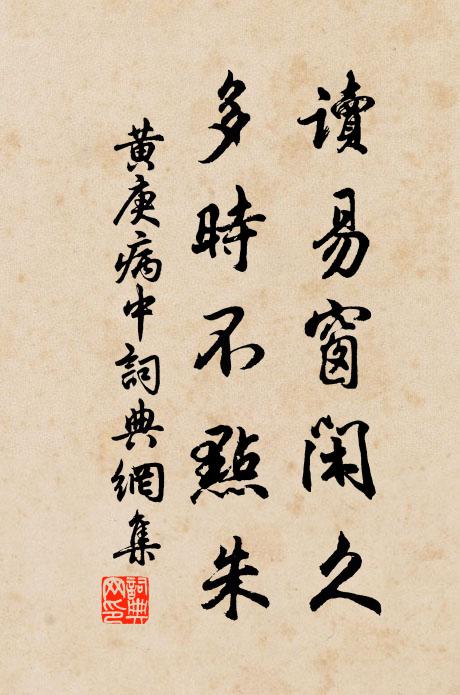 讀易窗閑久
多時不點朱
黃庚病中詞典網集
詞典網印